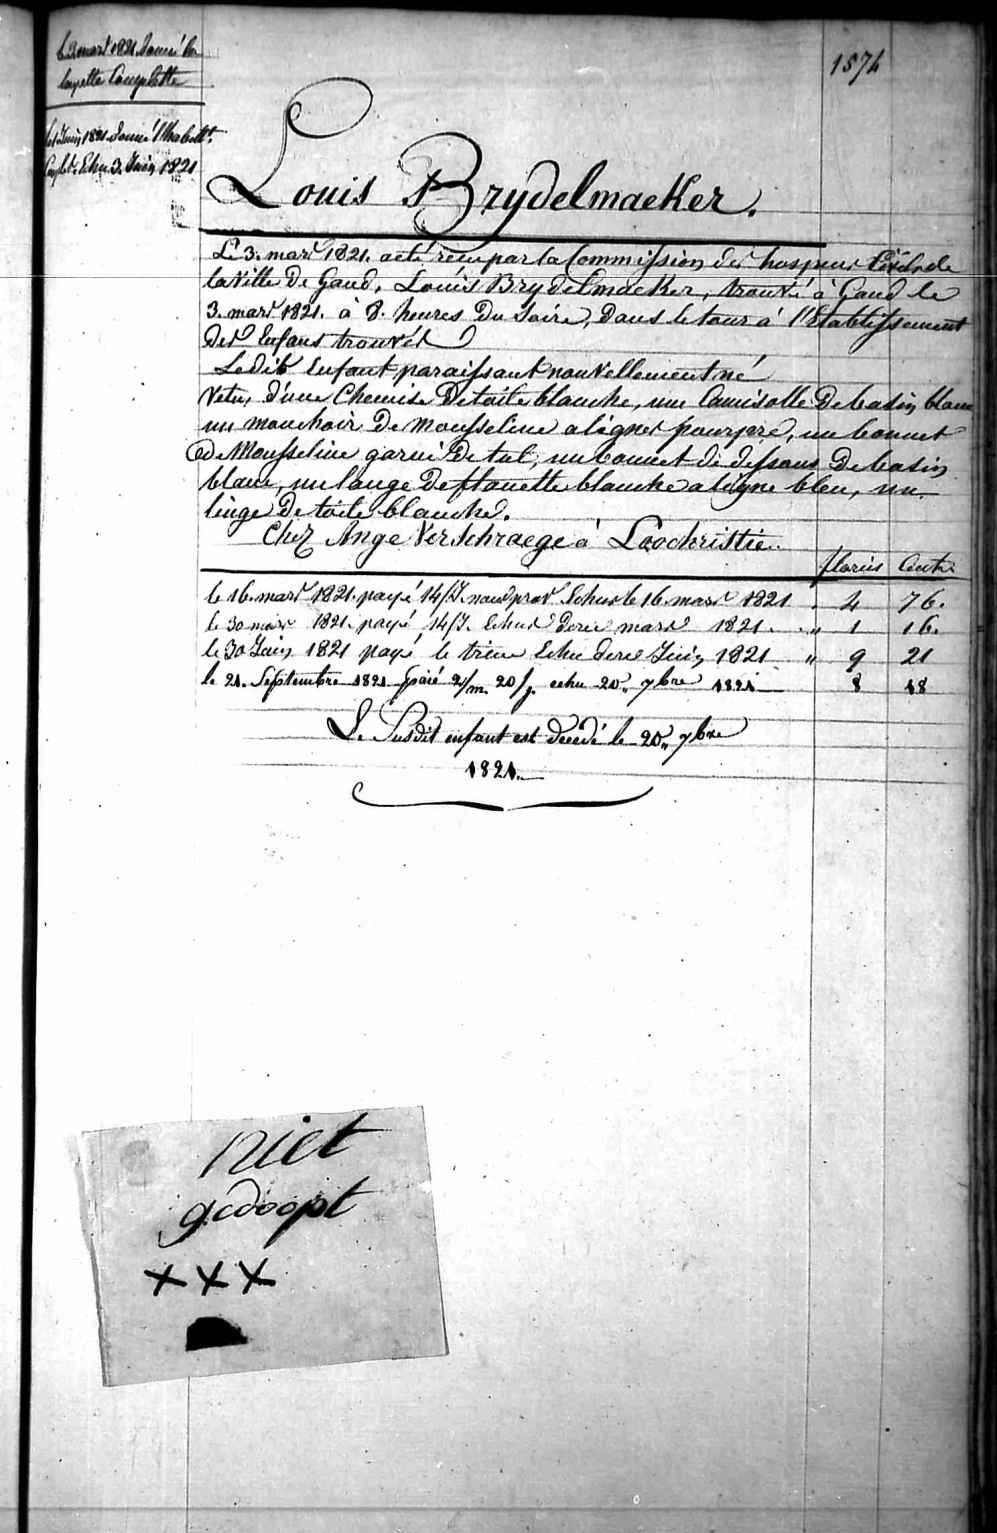 le 3 mars 1821 donné la
layette Complette
1574
le 1 Juin 1821 donné l'habillt.
Complt. Echu 3. Juin 1821
Louis Brydelmaeker.
Le 3. mars 1821. a eté reçu par la Commission des hospices Civils de
la Ville De Gand, Louis Brydelmaeker, trouvé à Gand le
3. mars 1821. à 8. heures Du Soire, Dans le tour à l'Etablissement
des Enfans trouvés
Ledit Enfant paraissant nouvellement né
Vetu, d'une Chemise De toile blanche, une Camisolle De basin blanc
un mouchoir De mousseline a lignes pourpre, un bonnet
de Mousseline garni De tul, un bonnet de dessous De basin
blanc, un lange De flanelle blanche a ligne bleu, un
linge De toile blanche.
Chez Ange Verschraege à Loochristie.
florins Cents
le 16. mars 1821. payé 14/J. nour prov Echus le 16. mars 1821 . 4 76.
le 30 mars 1821. payé 14/J. Echus dere mars 1821. " 1 16.
le 30 Juin 1821 payé le trime Echu dere Juin 1821 " 9 21
le 21. Septembre 1821 païé 2/m 20/j. echu 20,, 7bre 1821 8 18
Le Susdit enfant est décédé le 20,, 7bre
1821.
niet
gedoopt
xxx